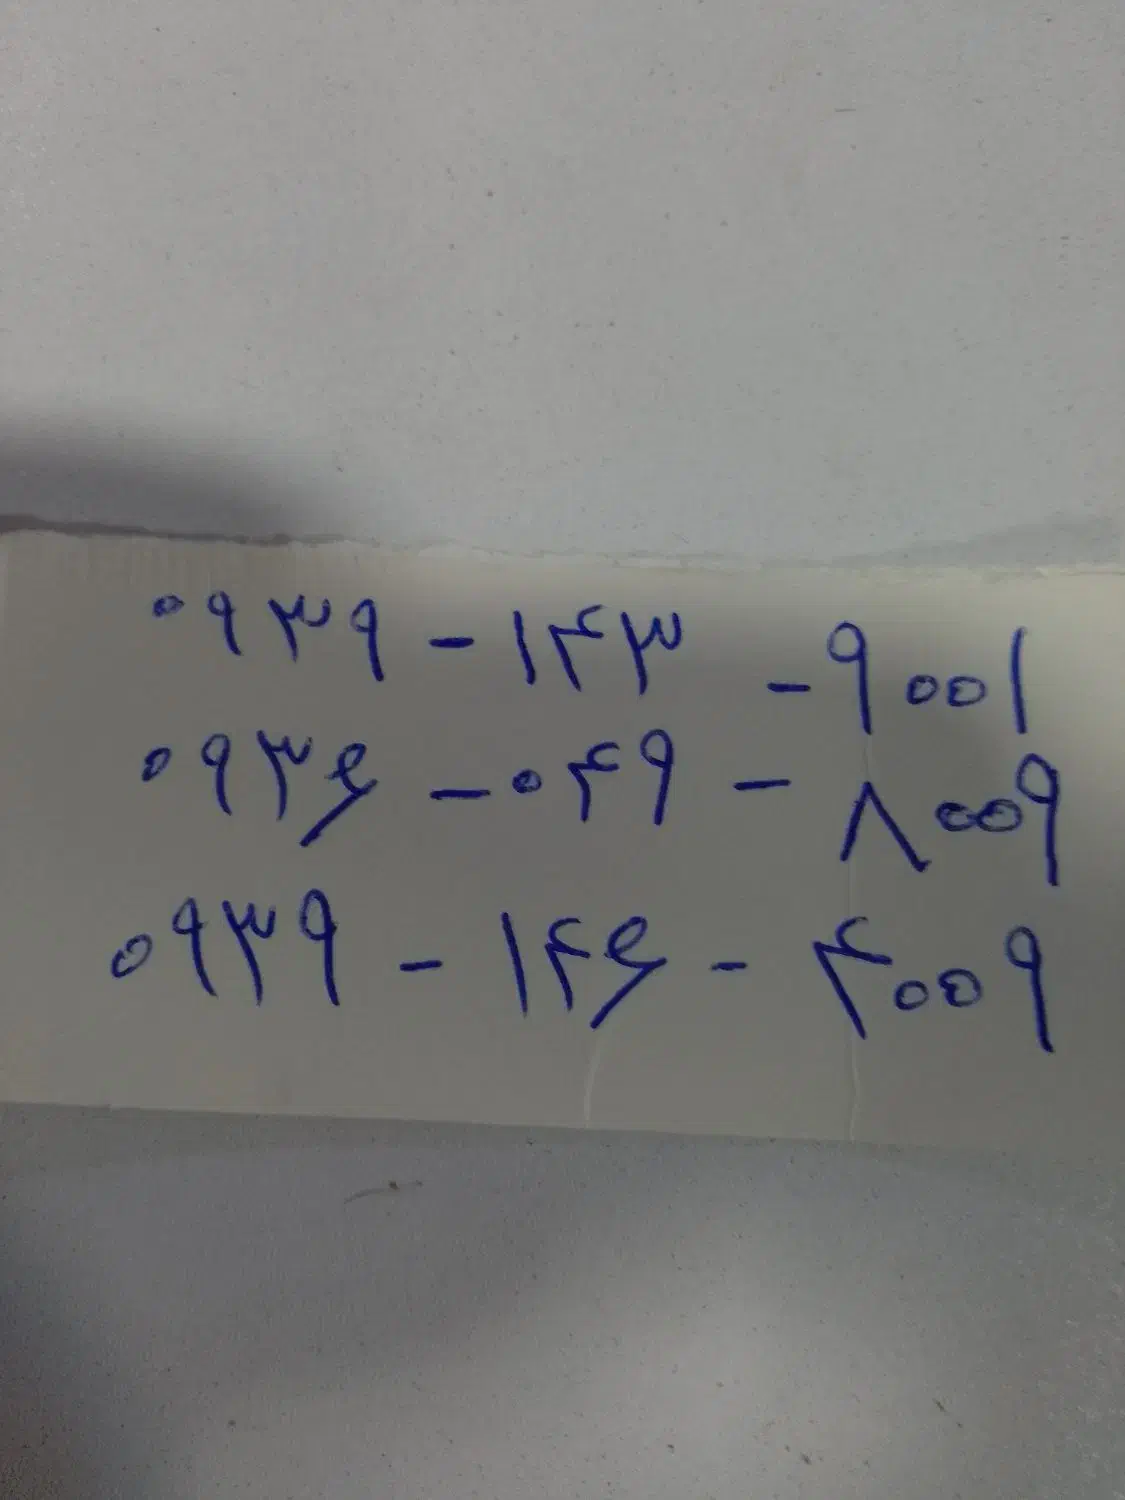 ۰۹۳۹ - ۱۴۳ - ۹۰۰۱
۰۹۳۶ - ۰۴۹ - ۸۰۰۹
۰۹۳۹ - ۱۴۶ - ۴۰۰۹